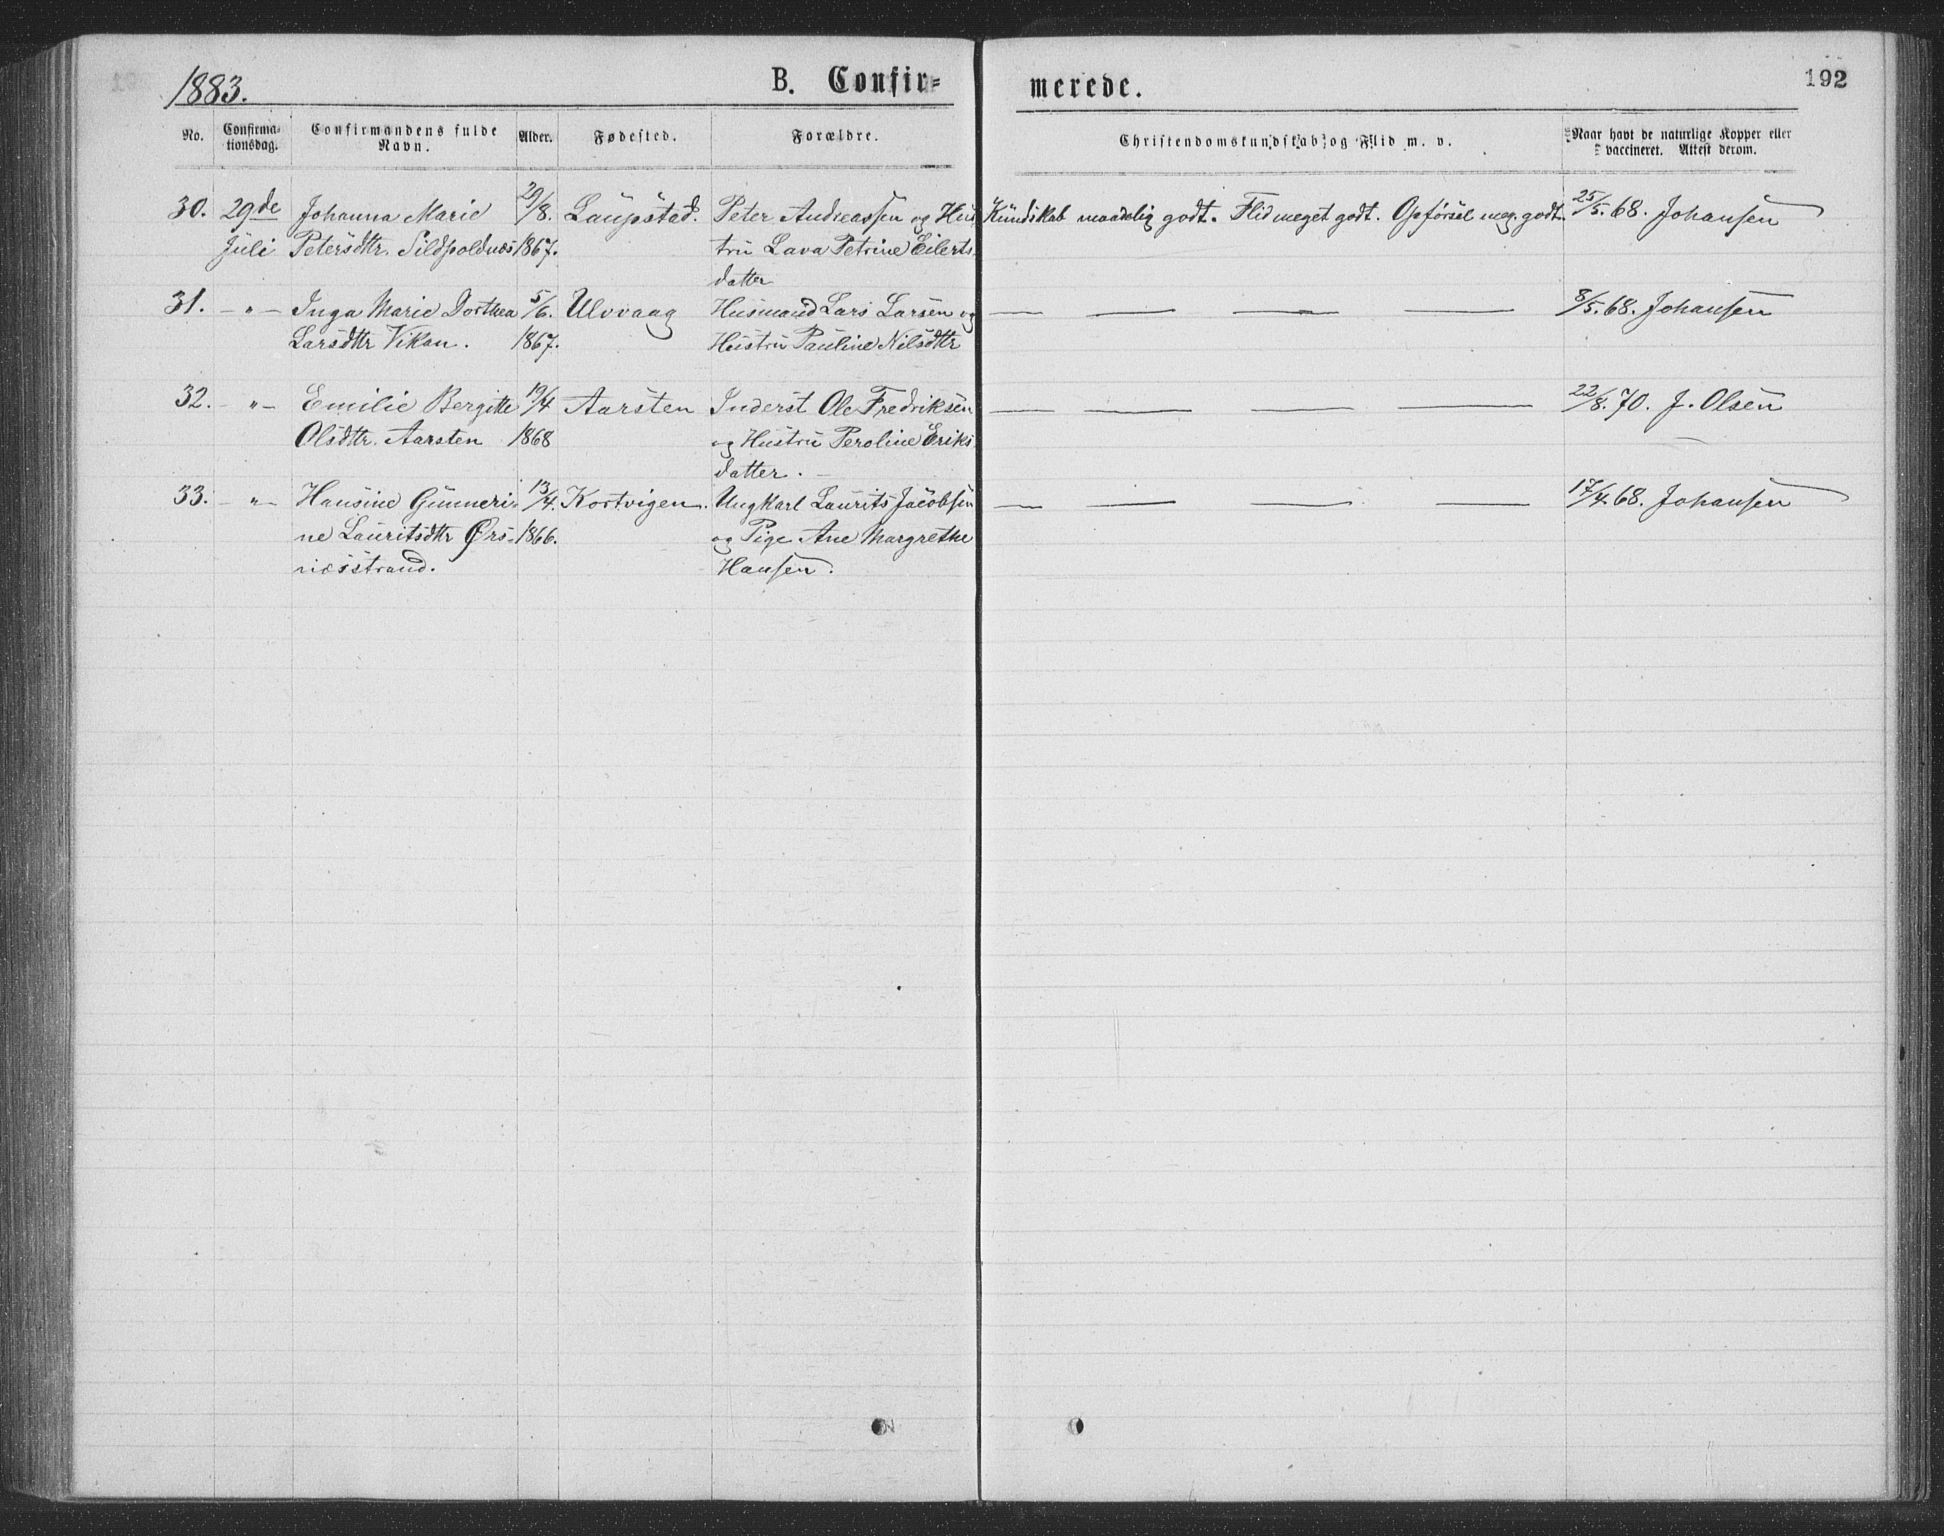 1883.
B. Confir=
merede.
192
No.
Confirma-
tionsdag.
Confirmandens fulde
Navn.
Alder.
Fødested.
Forældre.
Christendomskundskab og Flid m. v.
Naar havt de naturlige Kopper eller
vaccineret. Attest derom.
30. 29de Johanna Marie 29/8. Laupstad. Peter Andreassen og Hus Kundskab maadelig godt. Flid meget godt. Opførsel meg. godt. 25/5. 68. Johansen
Juli Petersdttr. Sildpoldnæs 1867. tru Lava Petrine Eilerts
datter
31. - " - Inga Marie Dorthea 5/6. Ulvvaag Husmand Lars Larsen og — — — — 8/5. 68. Johansen
Larsdttr Vikan. 1867. Hustru Pauline Nilsdttr
32. - " - Emilie Bergitte 19/4 Aarsten Inderst Ole Fredriksen — — — — 22/8. 70. J. Olsen
Olsdttr. Aarsten 1868 og Hustru Peroline Eriks
datter. -
33. - " - Hansine Gunneri- 13/4. Kortvigen. Ungkarl Laurits Jacobsen — — — — 17/4. 68. Johansen
ne Lauritsdttr Ørs- 1866. og Pige Ane Margrethe
næsstrand. Hansen.